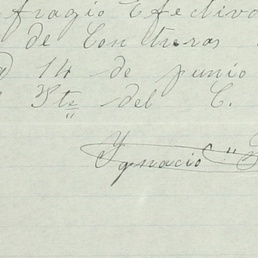 fragio Efectivo
de Contreras
14 de junio
Pte del C.
Ygnacio